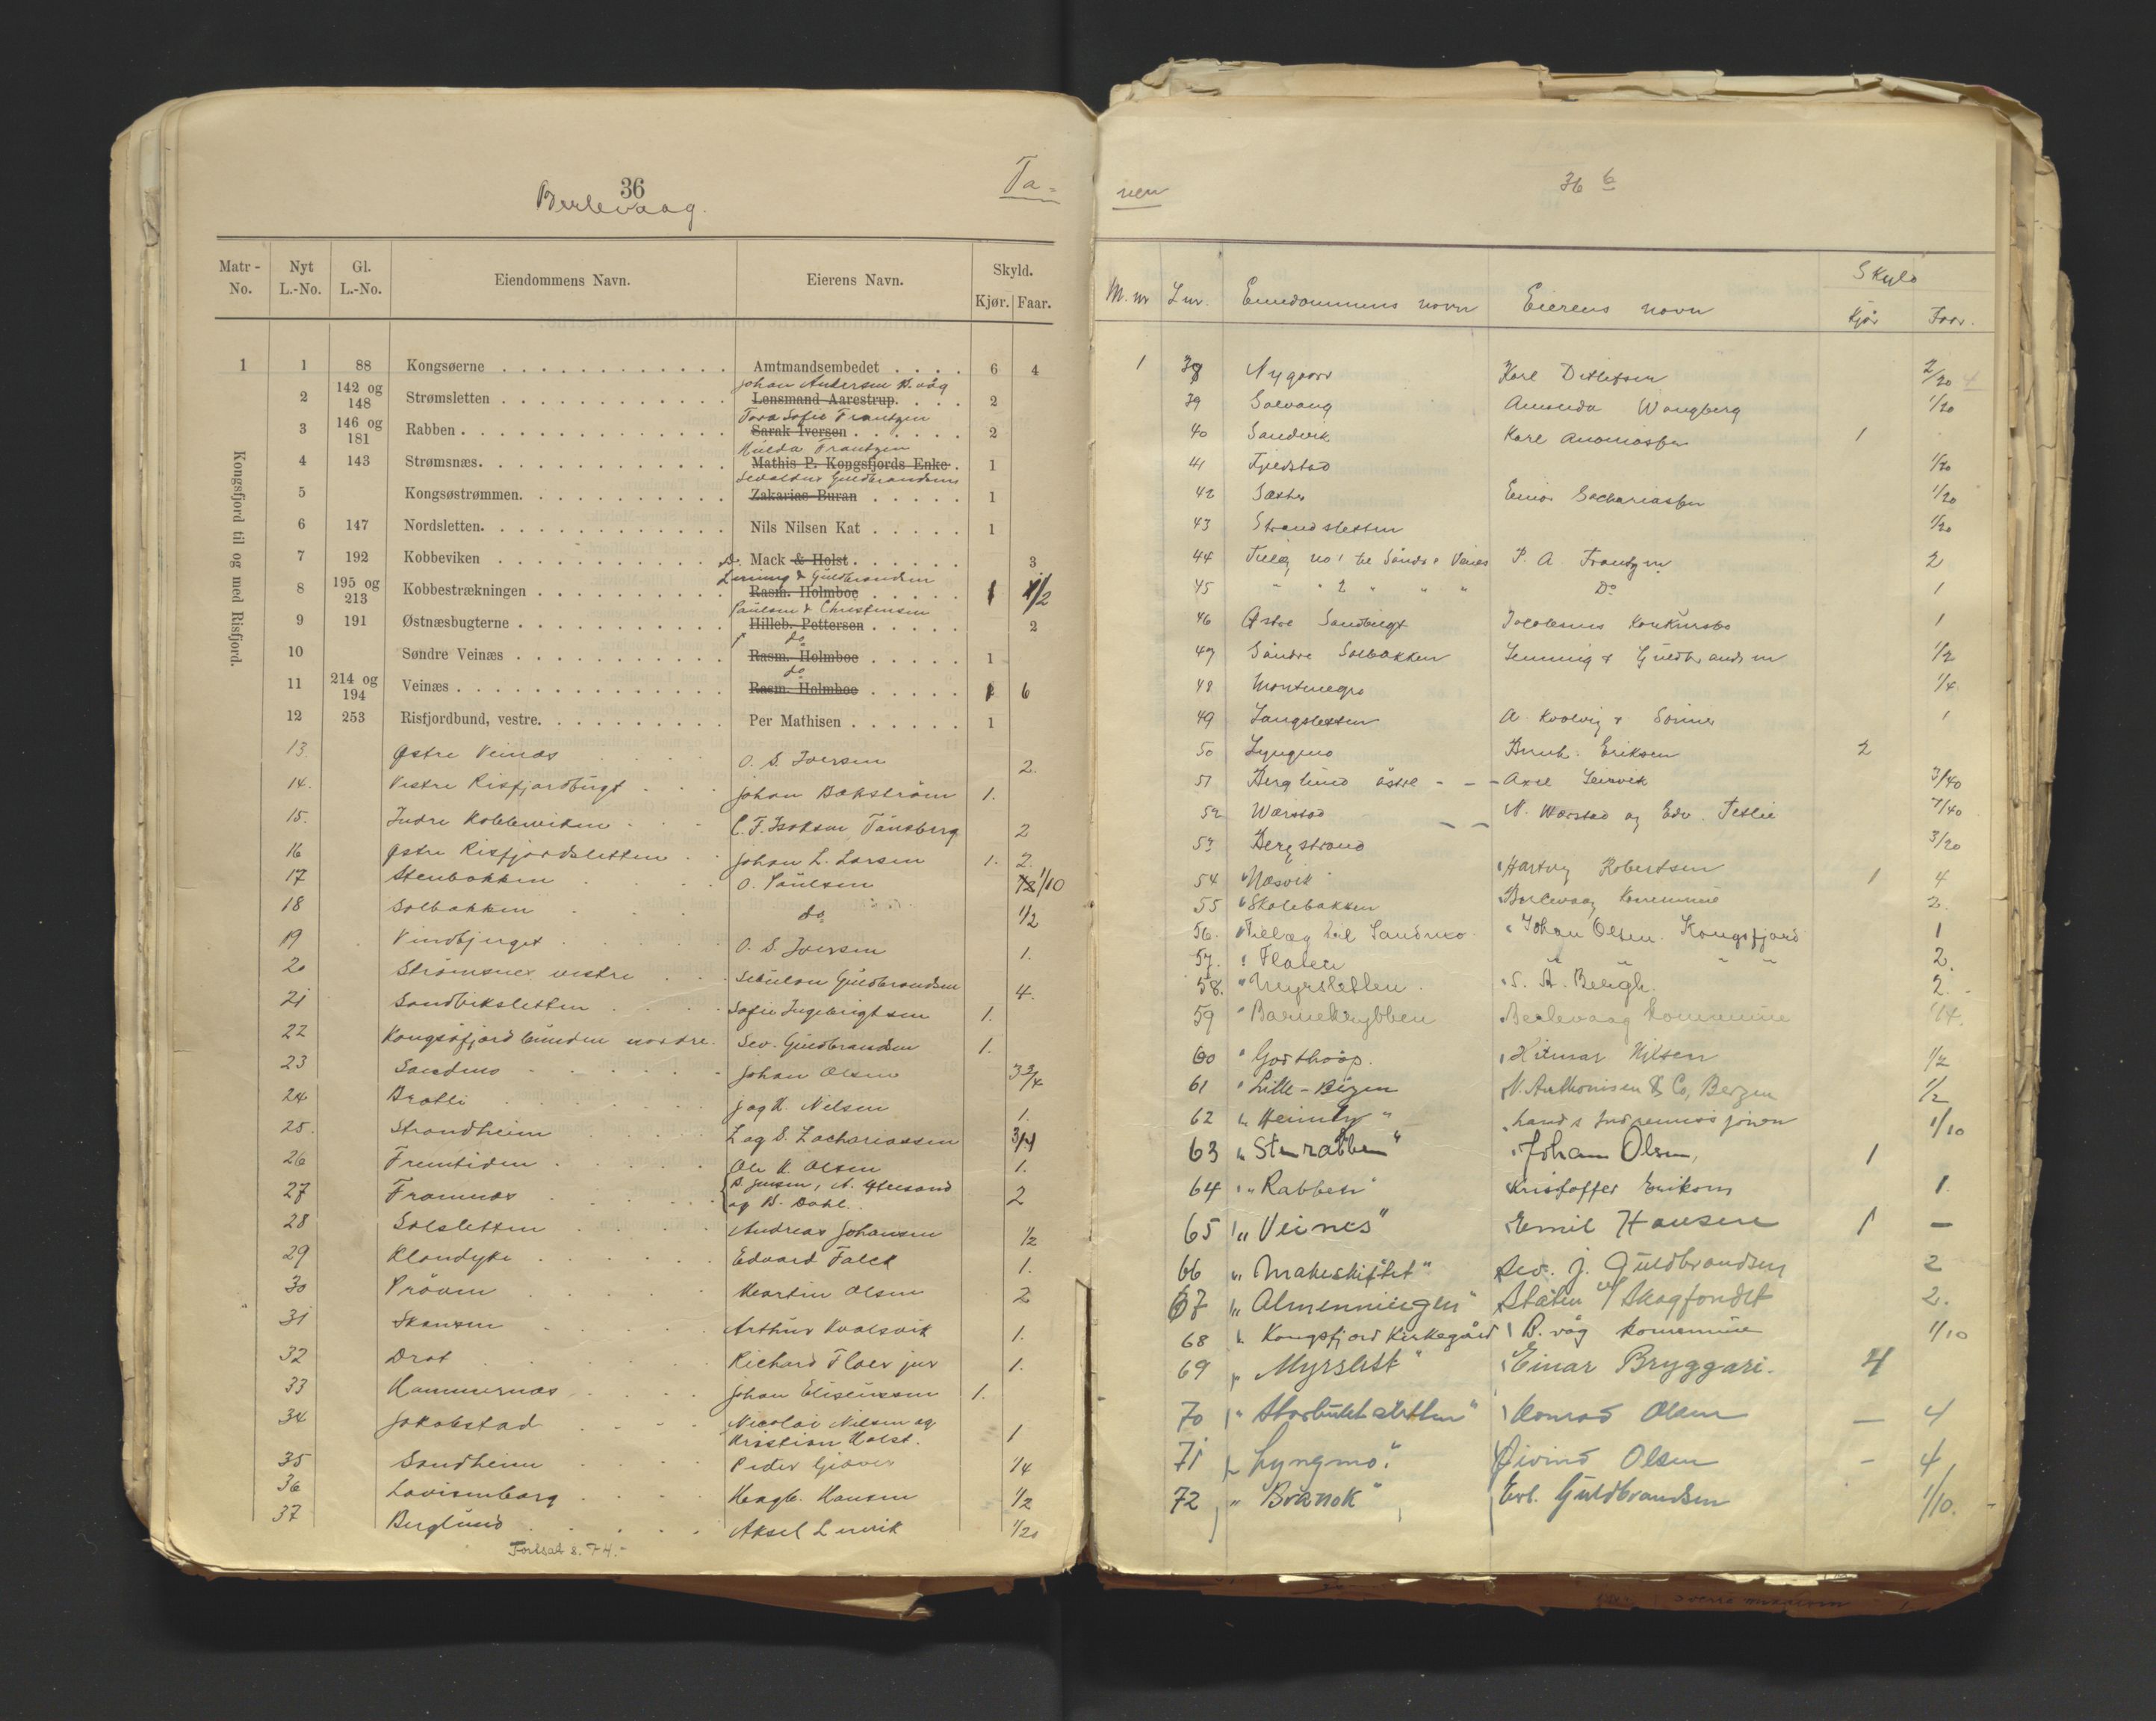 36
Berlevaag.
Ta-
Matr-No. Nyt L.-No. Gl. L.-No. Eiendommens Navn. Eierens Navn. Skyld. Kjør. Faar.
Kongsfjord til og med Risfjord.
1 1 88 Kongsøerne Amtmandsembedet 6 4
Johan Andersen B.våg
2 142 og 148 Strømsletten Lensmand Aarestrup. 2
Tora Sofie Frantzen
3 146 og 181 Rabben Sarak Iversen 2
Hulda Frantzen
4 143 Strømsnæs. Mathis P. Kongsfjords Enke 1
Guldbrandsen
5 Kongsøstrømmen. Zakarias Buran 1
6 147 Nordsletten. Nils Nilsen Kat 1
7 192 Kobbeviken D. Mack & Holst 3
& Guldbrandsen
8 195 og 213 Kobbestrækningen Rasm. Holmboe 1 1/2
Paulsen & Christensen
9 191 Østnæsbugterne Hilleb. Pettersen 2
do
10 Søndre Veinæs Rasm. Holmboe 1
do
11 214 og 194 Veinæs Rasm. Holmboe 1 6
12 253 Risfjordbund, vestre. Per Mathisen 1
13. Østre Veinæs O. S. Iversen 2.
14. Vestre Risfjordbugt Johan Bakström 1.
15. Indre Kobbeviken C. F. Isaksen Tånsberg 2
16 Østre Risfjordsletten Johan L. Larsen 1. 2.
17 Stenbakken O. Paulsen 1/10
18 Solbakken do 1/2
19 Vindbjerget O. S. Iversen 1.
20 Strömsnes vestre Sebulon Guldbrandsen 4.
21 Sandviksletten Sofie Ingebrigtsen 1.
22 Kongsfjordbunden nordre. Sev. Guldbrandsen 1.
23 Sandmo Johan Olsen 3 3/4
24 Bratli Jog H. Nilsen 1.
25. Strandheim Zag S. Zachariassen 3/4
26 Fremtiden Ole K. Olsen 1.
27 Framnæs B. Jensen, A. og B. Dahl. 2
28 Solsletten Andreas Johansen 1/2
29 Klondyke Edvard Falck 1.
30 Pröven Martin Olsen 2
31 Skansen Arthur Kvalsvik 1.
32 Drot Richard Floer jur 1.
33 Hammernæs Johan Eliseussen 1.
34 Jakobstad Nicolai Nilsen og Kristian Holst. 1
35 Sandheim Peder Giæver 1/4
36 Lovisenborg Hagb. Hansen 1/2
37 Berglund Aksel Lervik 1/20
Fortsat s. 74.-
nen
36 b
M. nr L nr. Eiendommens navn Eierens navn Skyld Kjør Faar.
1 38 Nygaard Karl Ditlefsen 2/20
39 Solvang Amanda Wangberg 1/20
40 Sandvik Karl Ananiassen 1
41 Fjeldstad 1/20
42 Sæther Einar Sachariassen 1/20
43 Strandsletten 1/20
44 Tillæg no 1 til Söndre Veines P. A. Frantzen 2
45 " " 2 " " " Do 1
46 Østre Sandbugt Jacobsens Konkursbo 1
47 Söndre Solbakken & Guldbrandsen 1/2
48 Montenegro 1/4
49 Langsletten A. Kvalvig & Sönner 1
50 Lyngmo Bernh. Eriksen 2
51 Berglund östre Axel Leirvik 3/40
52 Warstad N. Warstad og Edv. Teslie 7/40
53 Bergstrand 3/20
54 " Næsvik Hartvig Robertsen 1 4
55 " Skolebakken Berlevaag Kommune 2.
56. " Tillæg til Sandmo Johan Olsen. Kongsfjord 1
57. " Flaten " " " 2.
58. " Myrsletten S. A. Bergh. 2.
59 " Barnekrybben Berlevaag Kommune 1/4.
60 " Godthaap. Hilmar Nilsen 1/2
61 " Lille-Bergen N. Anthonisen & Co, Bergen 1/2
62 " Heimly " Lands Indremisjonen 1/10
63 " Sturabben " Johan Olsen, 1
64 " Rabben " Kristoffer Eriksen 1.
65 " Veines " Emil Hansen 1 -
66 " Makeskiftet " Sev. J. Guldbrandsen 2
67 " Almenningen " Staten v/ Skogfondet 2.
68 " Kongsfjord Kirkegård B. våg kommune 1/10
69 " Myrslett " Einar Bryggari. 4
70 " Storbuktsletten " Konrad Olsen - 4
71 " Lyngmo. " Øivind Olsen - 4
72 " Branok " Evl. Guldbrandsen 1/10.